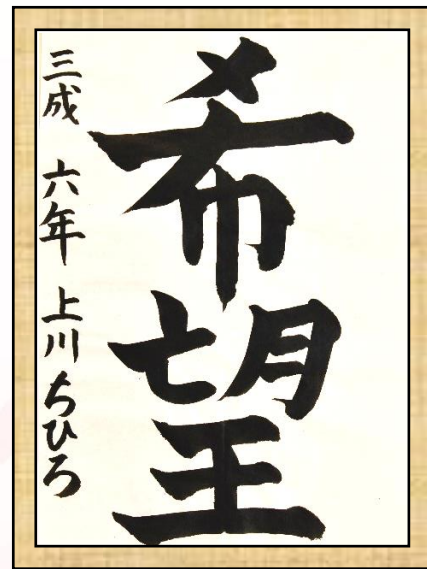 希望
三成 六年 上川ちひろ